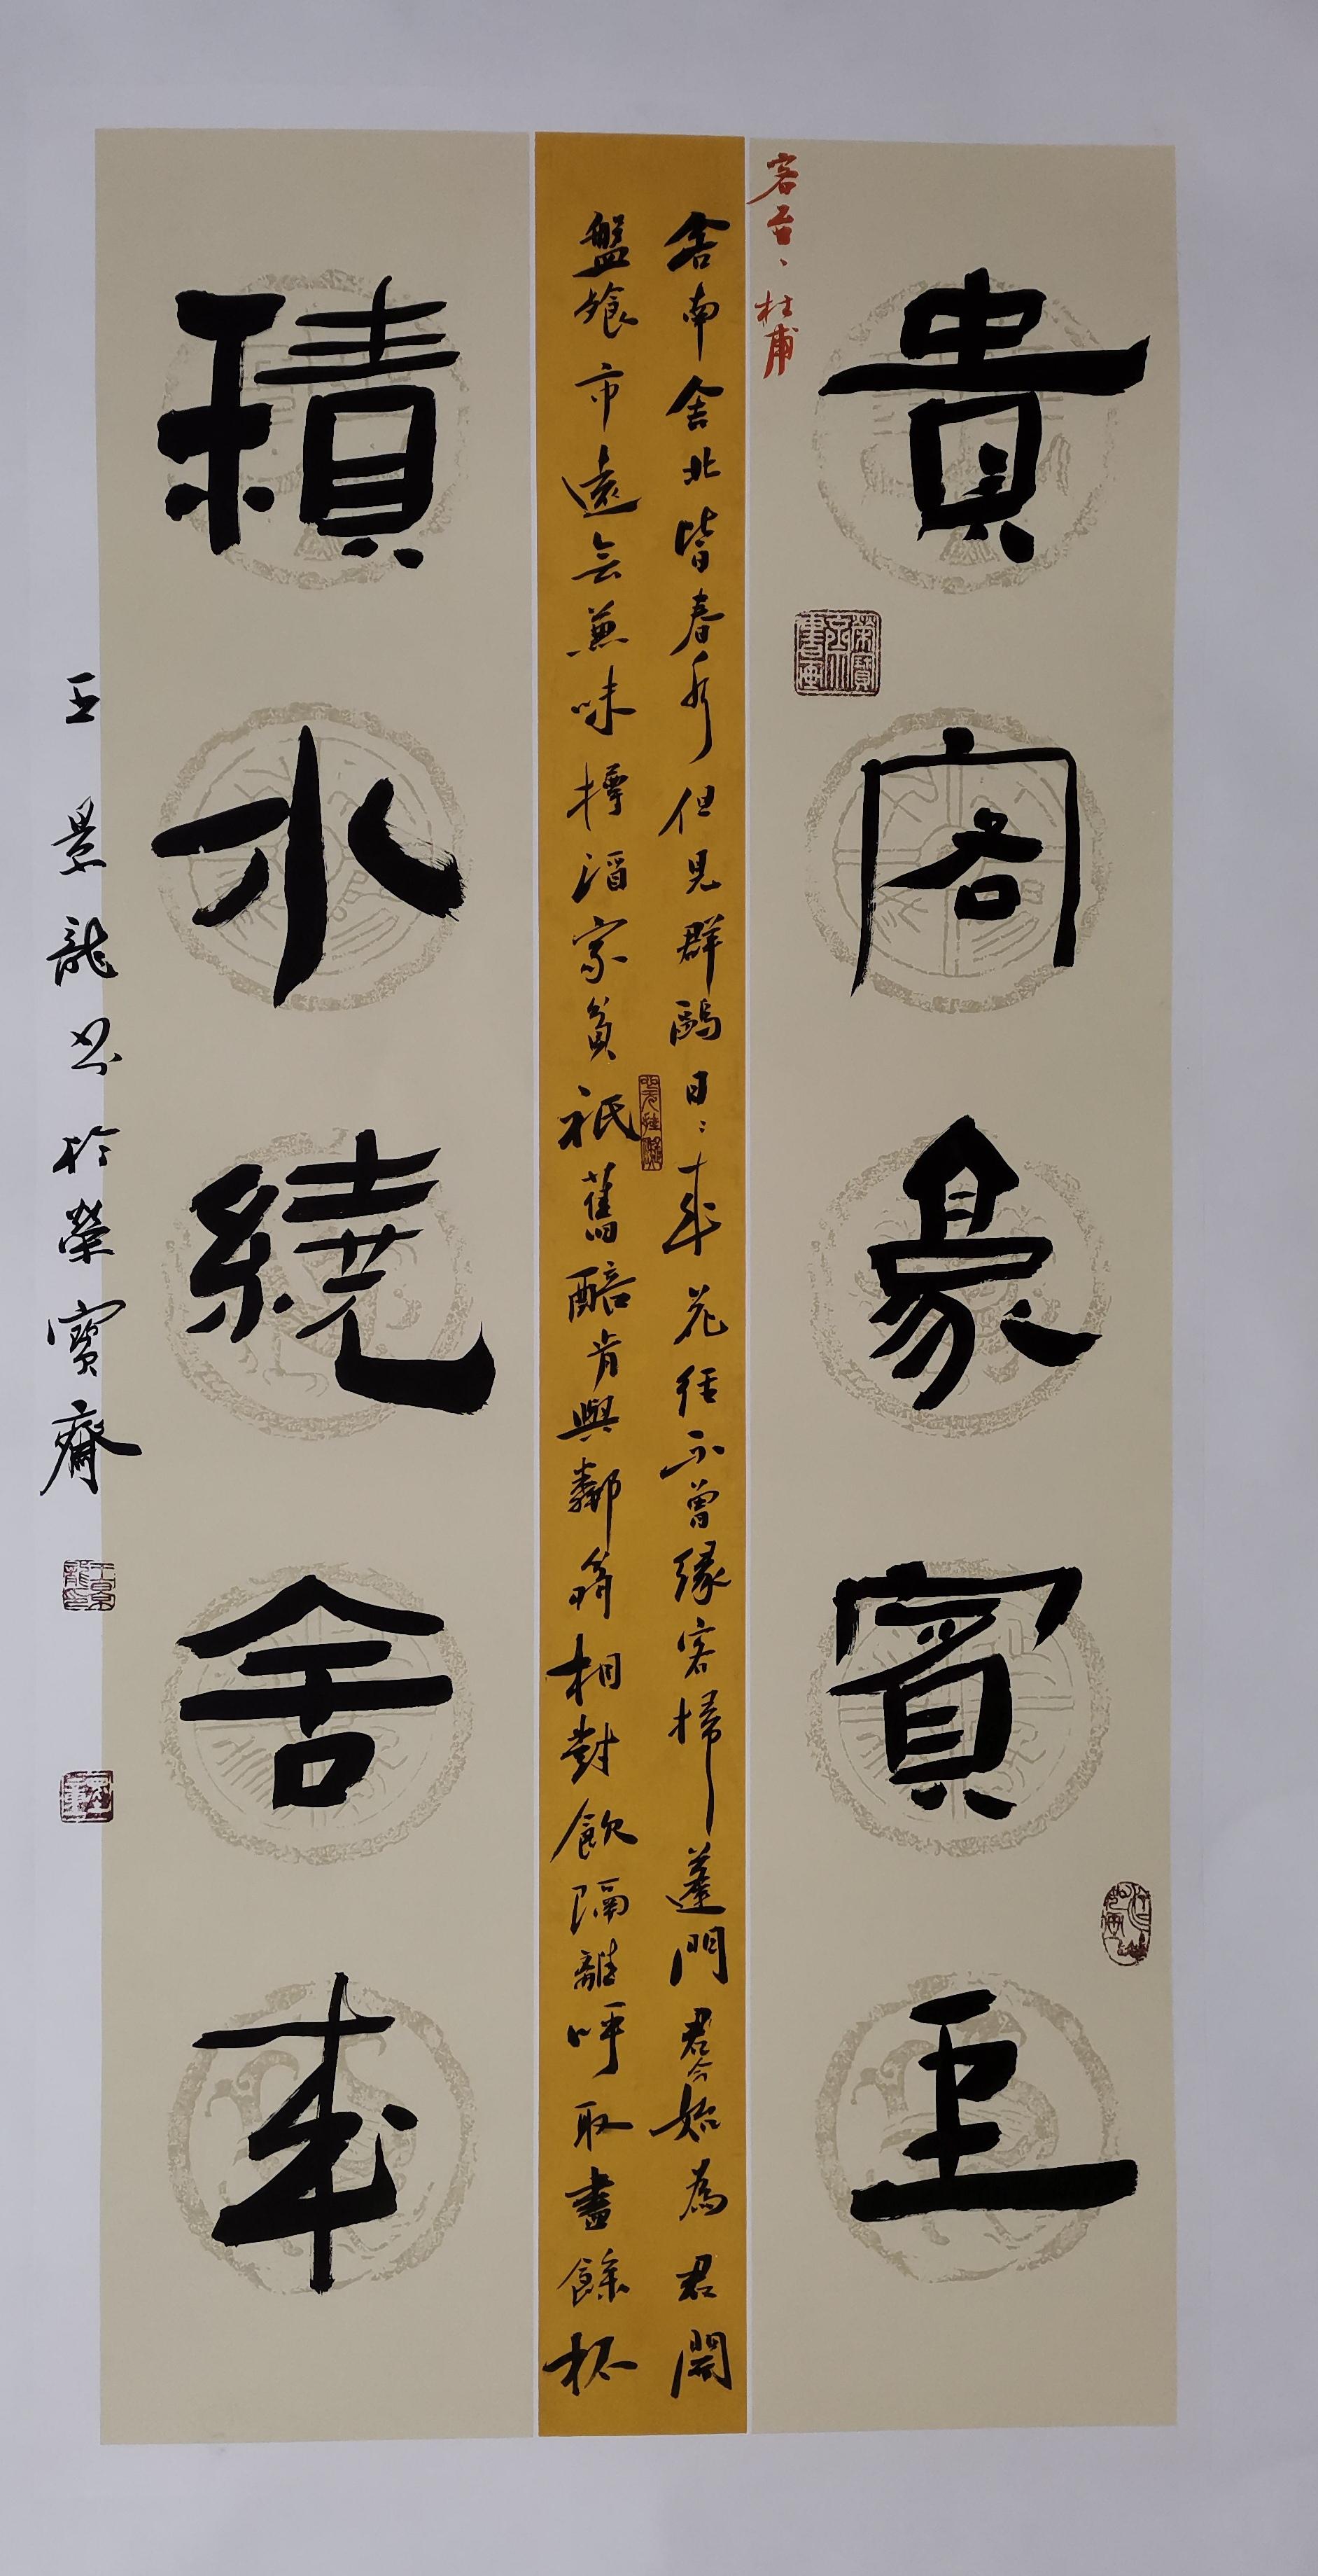 貴客賓至
客至、杜甫
舍南舍北皆春水但見群鷗日〻来花徑不曾緣客掃蓬門君今始為君開
盤飧市遠无兼味樽酒家貧祇舊醅肯與鄰翁相對飲隔離呼取盡餘杯
積水繞舍来
王景龍书於榮寶齋
王景龍印